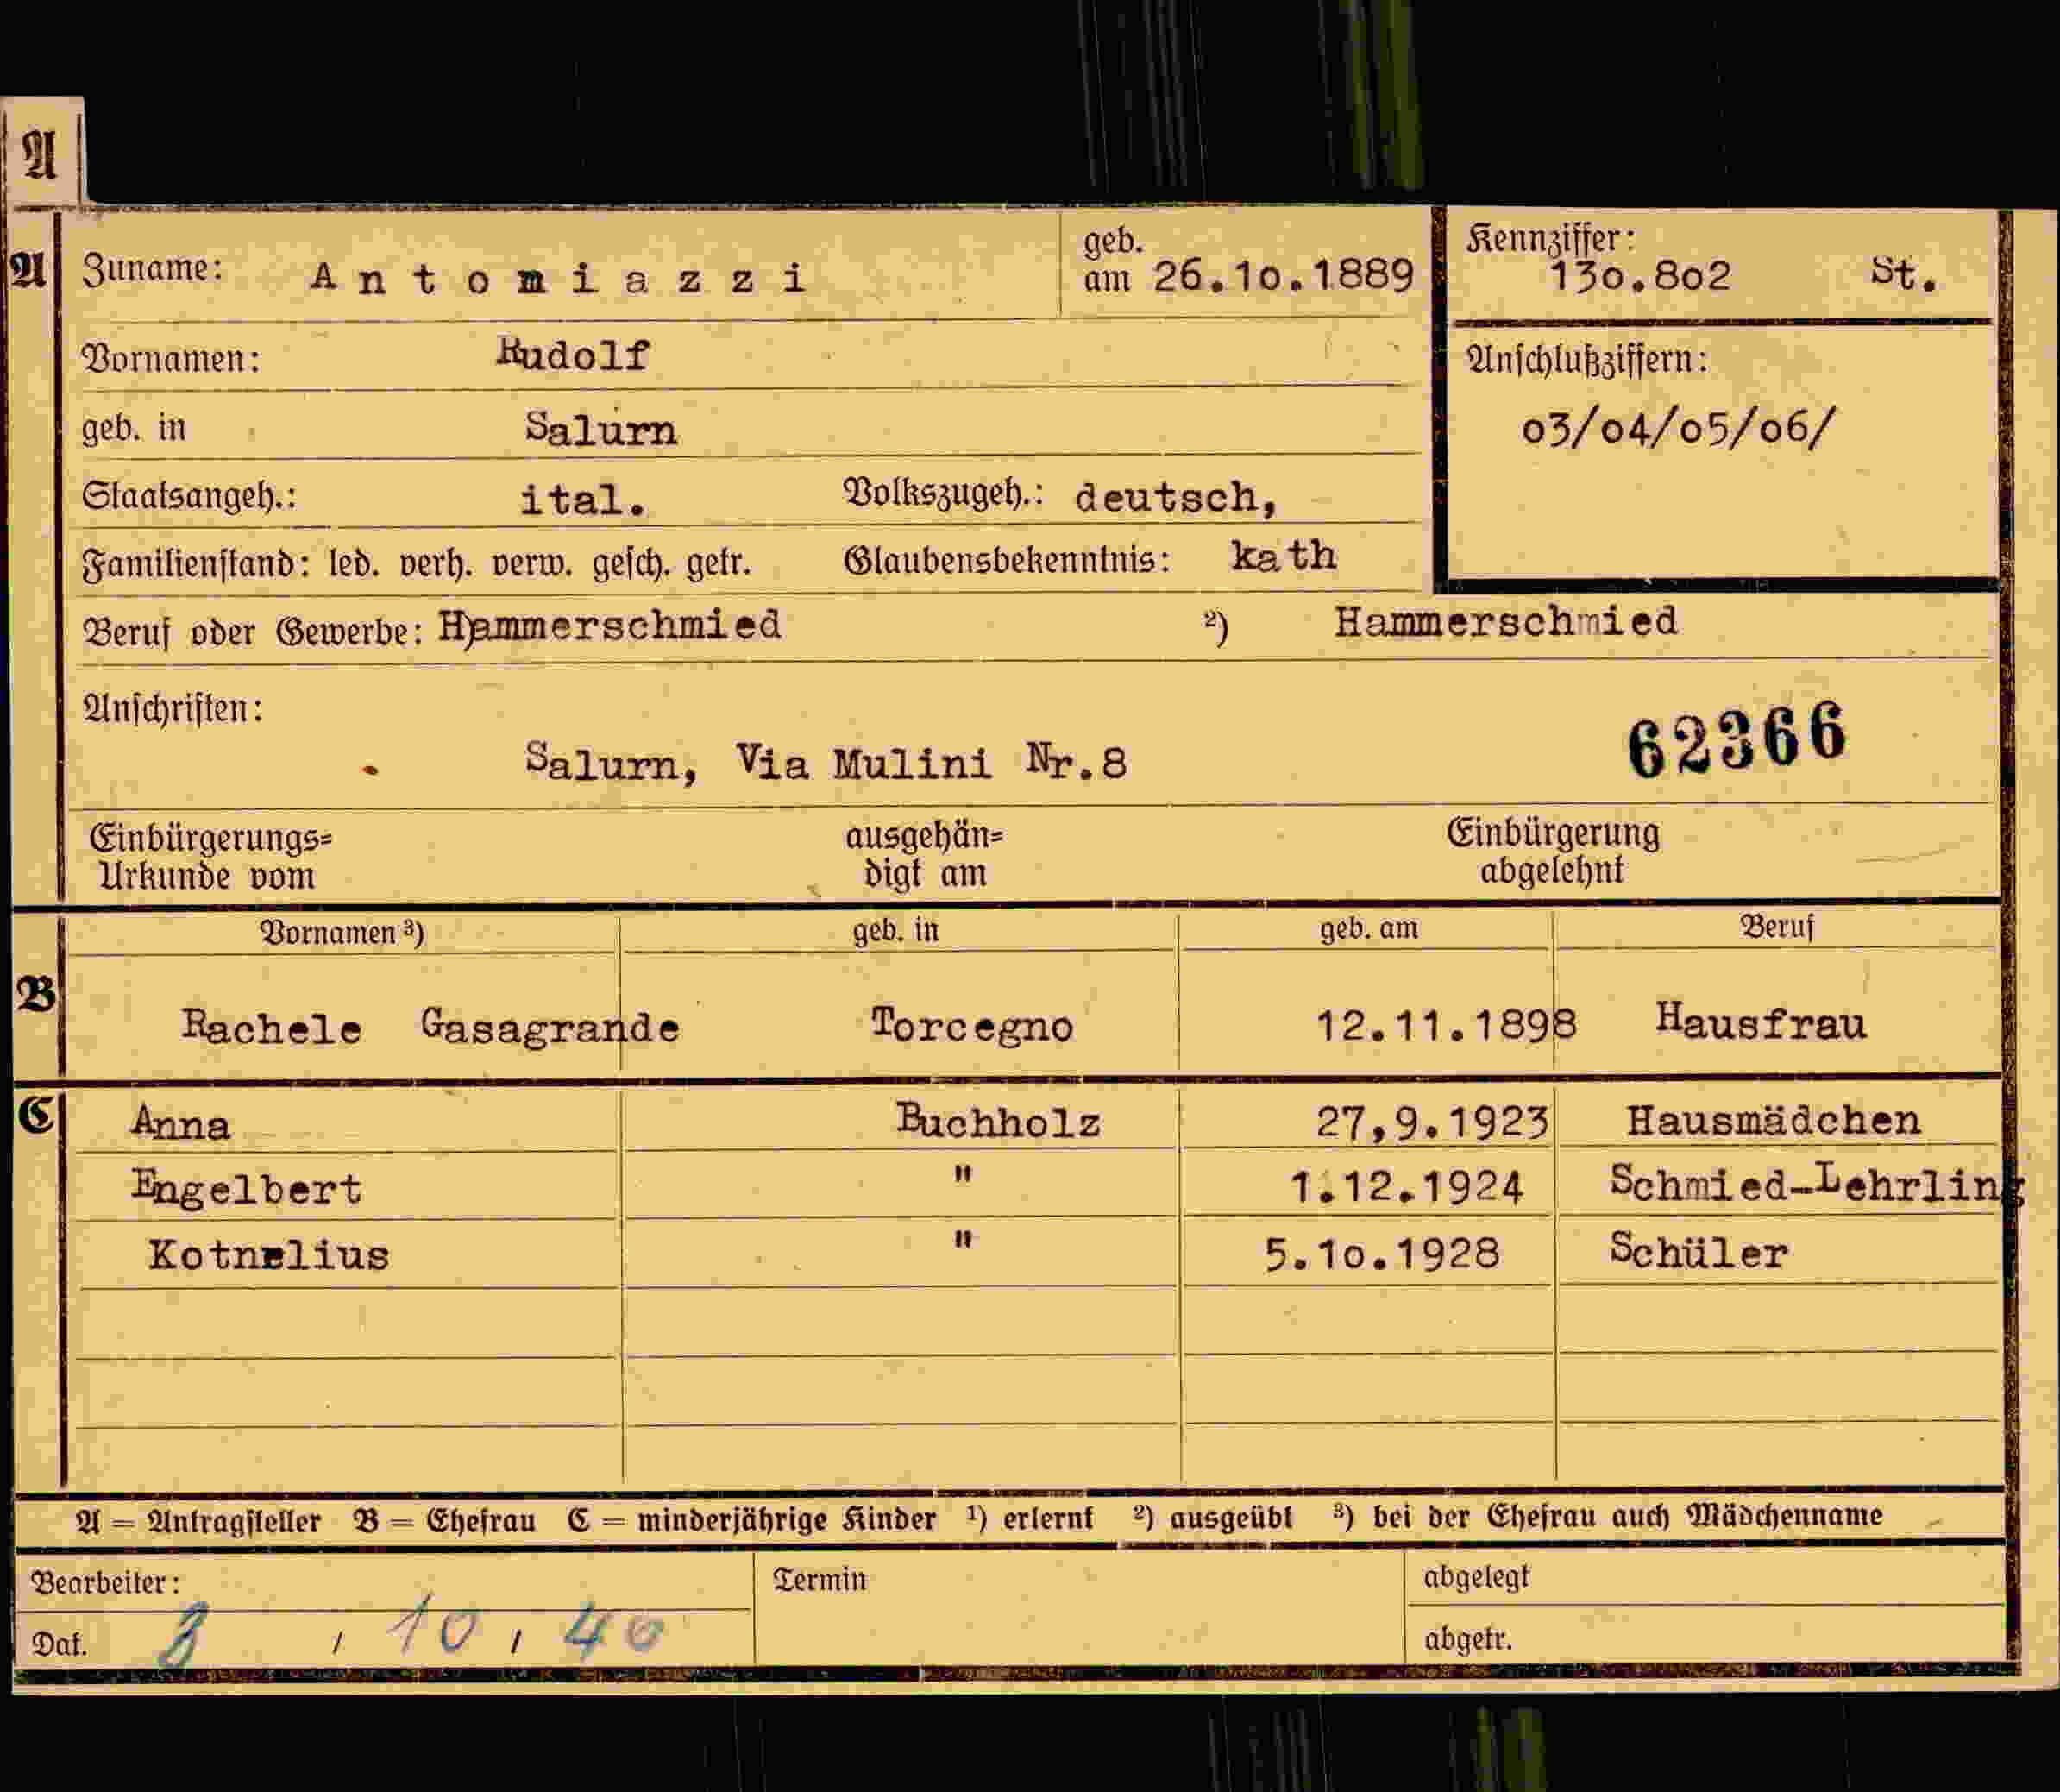 A
A Zuname: Antoniazzi geb. am 26.10.1889 Kennziffer: 130.802 St.
Vornamen: Rudolf Anschlußziffern:
geb. in Salurn 03/04/05/06/
Staatsangeh.: ital. Volkszugeh.: deutsch,
Familienstand: led. verh. verw. gesch. getr. Glaubensbekenntnis: kath
Beruf oder Gewerbe: Hammerschmied ²) Hammerschmied
Anschriften:
Salurn, Via Mulini Nr.8 62366
Einbürgerungs= ausgehän= Einbürgerung
Urkunde vom digt am abgelehnt
Vornamen ³) geb. in geb. am Beruf
B Rachele Gasagrande Torcegno 12.11.1898 Hausfrau
C Anna Buchholz 27,9.1923 Hausmädchen
Engelbert " 1.12.1924 Schmied-Lehrling
Kotnelius " 5.10.1928 Schüler
A = Antragsteller B = Ehefrau C = minderjährige Kinder ¹) erlernt ²) ausgeübt ³) bei der Ehefrau auch Mädchenname
Bearbeiter: Termin abgelegt
Dat. 3, 10, 40 abgetr.